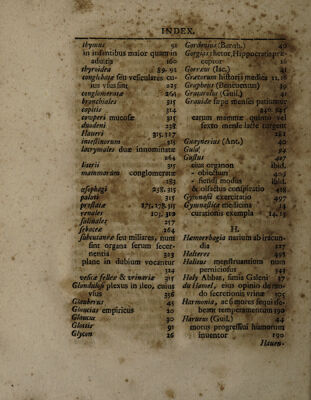 INDEX.
thymus 91
in infantibus maior quam in
adultis 160
thyroidea 89. 91
conglobatæ seu vesiculares cu-
ius vsus sint 225
conglomeratæ 264
bronchiales 315
capitis 314
cowperi mucosæ 315
duodeni 238
Haueri 315. 317
intestinorum 315
lacrymales duæ innominatæ
264
lienis 315
mammarum conglomeratæ
283
œsophagi 238. 315
palati 315
prostatæ 275. 278. 315
renales 107. 329
salinales 217
sebaceæ 264
subcutaneæ seu miliares, num
sint organa serum secer-
nentia 323
plane in dubium vocantur
vesicæ felleæ & vrinariæ 315
Glandulosus plexus in ileo, cuius
vsus 236
Glauberus 45
Glaucias empiricus 20
Glaucus 30
Glottis 91
Glycon 26
Gordonius (Bernh.) 40
Gorgias rhetor, Hippocratis præ-
ceptor 16
Gorræus (Iac.) 41
Græcorum historia medica 11. 18
Grapheus (Benuenutus) 39
Grataroius (Guil.) 41
Grauidæ sæpe menses patiuntur
earum mammæ quinto vel
sexto mense lacte turgent
Guaynerius (Ant.) 40
Guil. 92
Gustus 427
eius organon ibid.
- obiectum
- fiendi modus ibid.
& olfactus conspiratio 428
Gymnasii exercitatio 497
Gymnastice medicina
curationis exempla 14. 15
H.
Hæmorrhagia narium ab iracun-
dia 127
Halteres 498
Halitus menstruantium num
perniciosus 341
Haly Abbas, simia Galeni 37
du Hamel, eius opinio de mo-
do secretionis vrinæ 105
Harmonia, ac humores sequi fo-
beant temperamentum 190
Harueus (Guil.) 44
motus progressiui humorum
inuentor 190
Hauen-